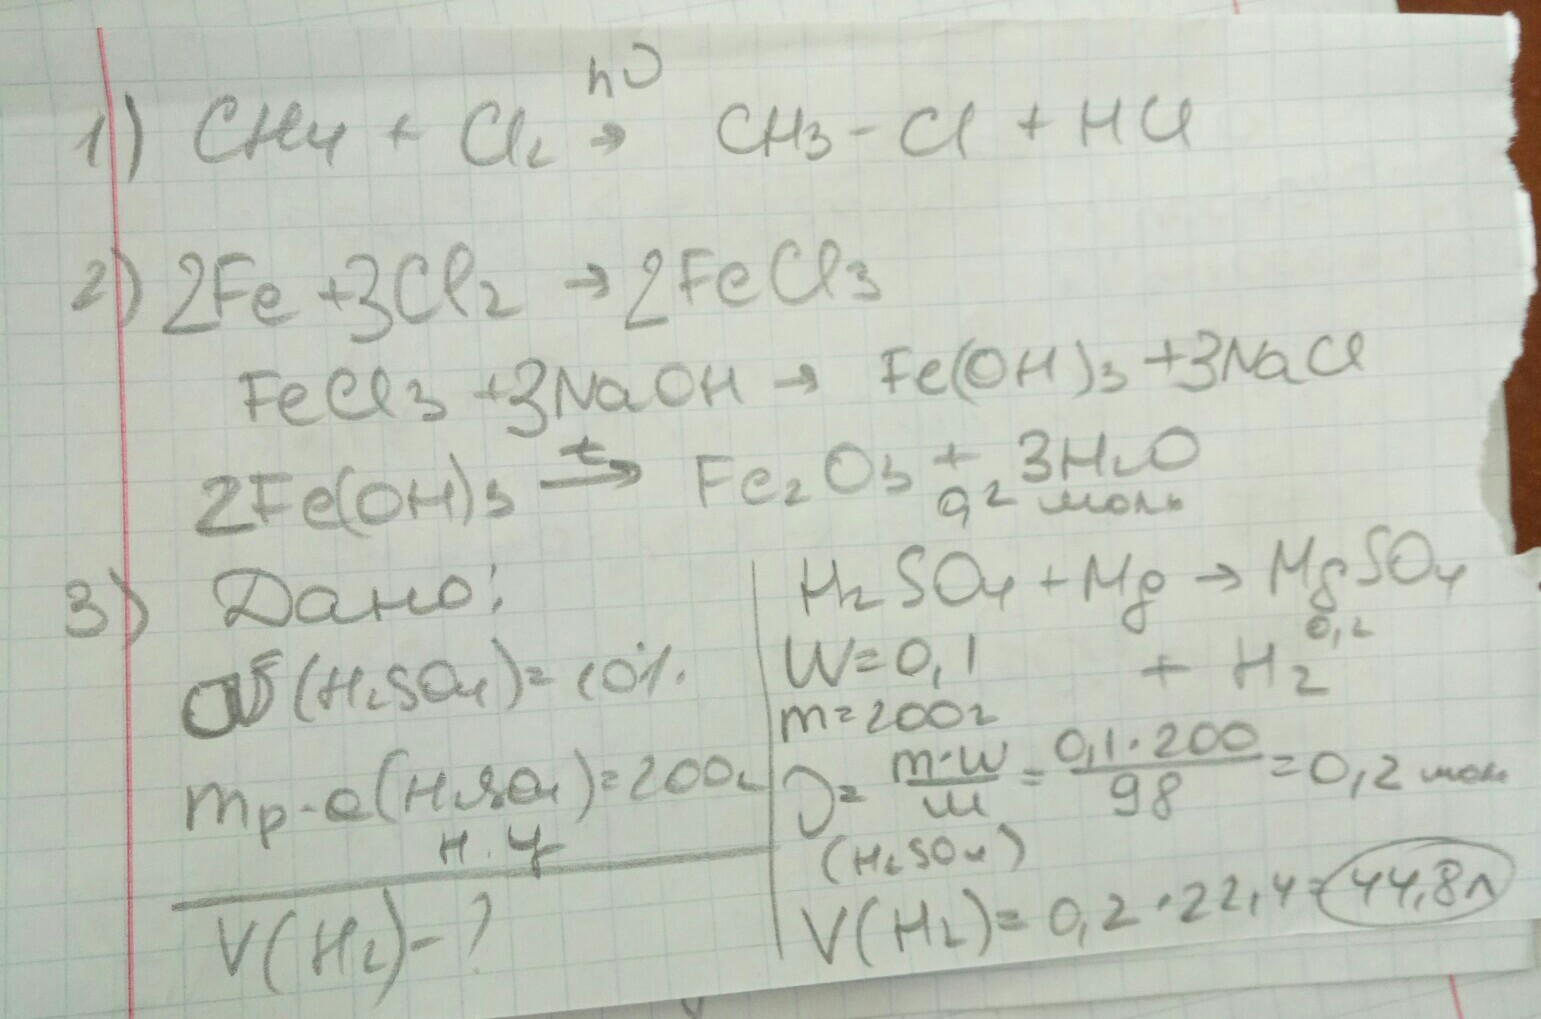 hν
1) CH4 + Cl2 → CH3 - Cl + HCl
2) 2Fe + 3Cl2 → 2FeCl3
FeCl3 + 3NaOH → Fe(OH)3 + 3NaCl
t
2Fe(OH)3 → Fe2O3 + 3H2O
0,2 моль
3) Дано:
ω(H2SO4) = 10%.
mр-а(H2SO4) = 200г
н.у
V(H2) - ?
H2SO4 + Mg → MgSO4
0,2
W = 0,1 + H2
m = 200г
ν = m·w/M = 0,1·200/98 = 0,2 моль
(H2SO4)
V(H2) = 0,2·22,4 = 44,8л